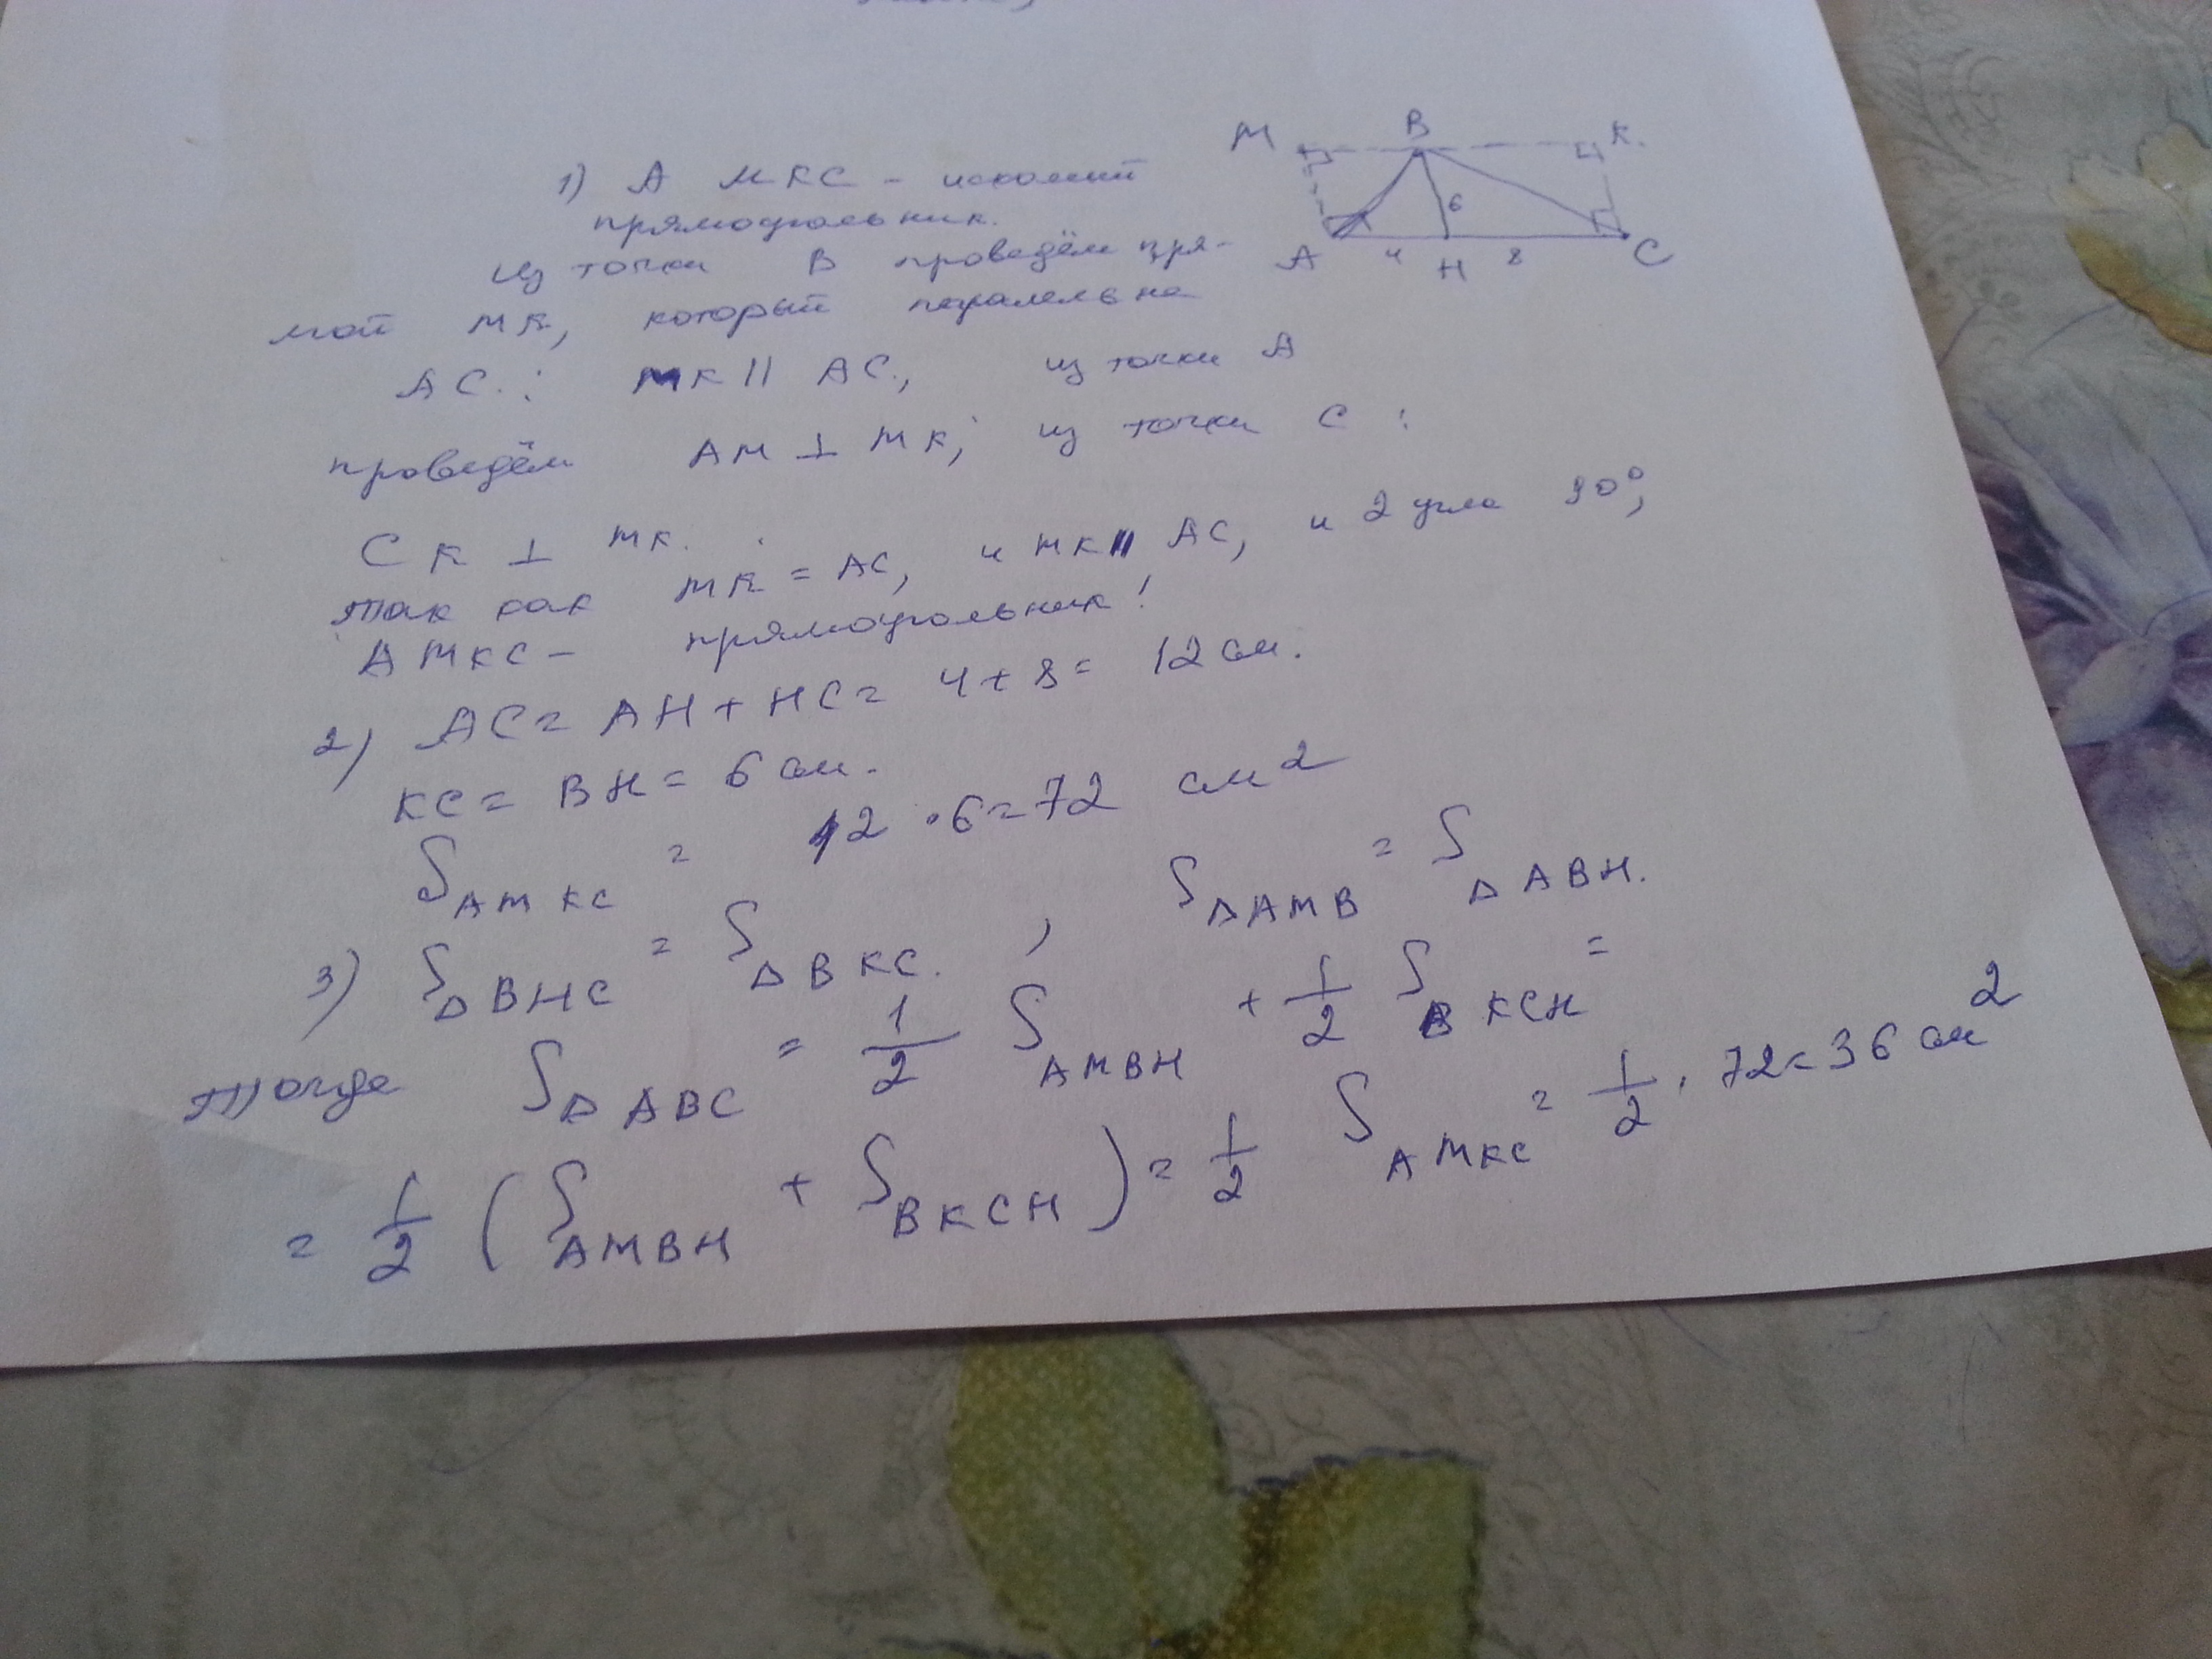 M B K.
6
A 4 H 8 C
1) AMKC - искомый
прямоугольник.
Из точки B проведём пря-
мой MK, который паралельна
AC.: MK || AC., из точки A
проведём AM ⊥ MK; из точки C :
CK ⊥ MK.
так как MK = AC, и MK || AC, и 2 угла 90°,
AMKC - прямоугольник!
2) AC = AH + HC = 4 + 8 = 12 см.
KC = BH = 6 см.
S AMKC = 12 · 6 = 72 см²
3) S ΔBHC = S ΔBKC. , S ΔAMB = S ΔABH.
тогда S ΔABC = 1/2 S AMBH + 1/2 S BKCH =
= 1/2 (S AMBH + S BKCH) = 1/2 S AMKC = 1/2 · 72 = 36 см²